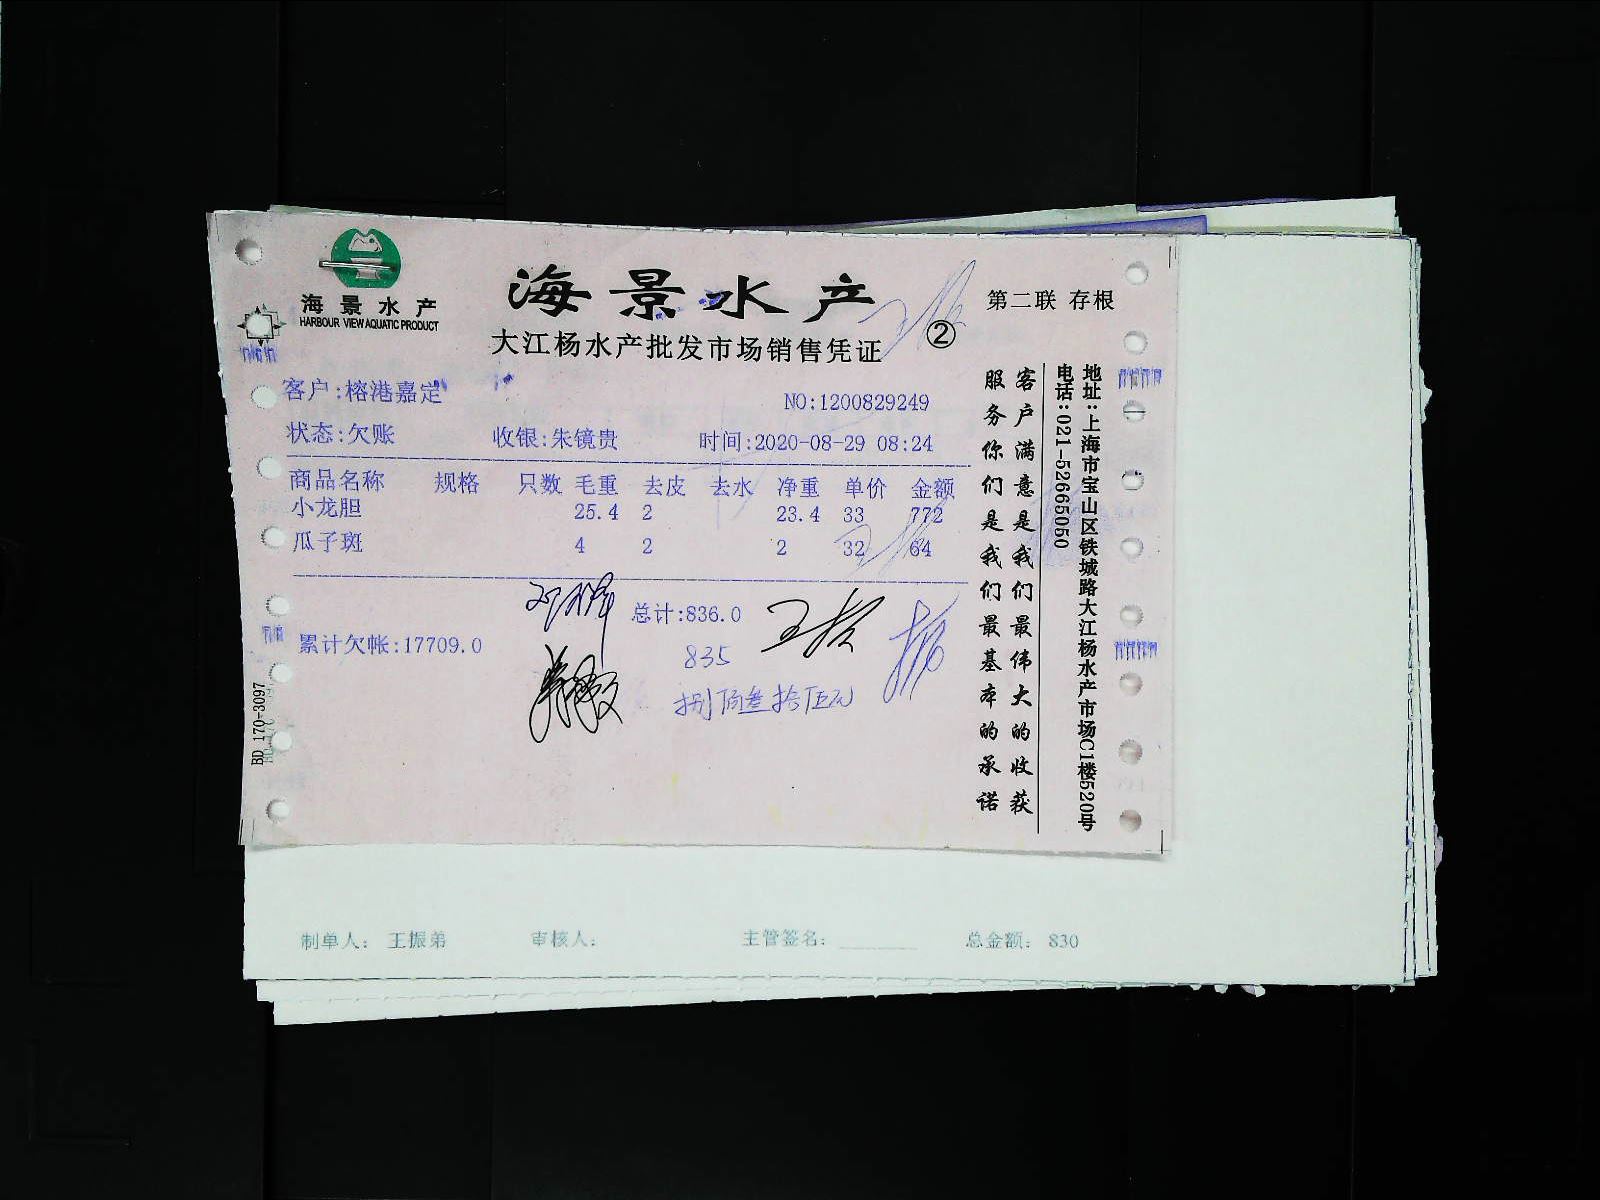 海景水产
HARBOUR VIEW AQUATIC PRODUCT
海景水产
第二联 存根
大江杨水产批发市场销售凭证 ②
客户:榕港嘉定
NO:1200829249
状态:欠账 收银:朱镜贵 时间:2020-08-29 08:24
商品名称 规格 只数 毛重 去皮 去水 净重 单价 金额
小龙胆 25.4 2 23.4 33 772
瓜子斑 4 2 2 32 64
总计:836.0
累计欠帐:17709.0
835
捌佰叁拾伍元
客户满意是我们最伟大的收获
服务你们是我们最基本的承诺
地址:上海市宝山区铁城路大江杨水产市场C1楼520号
电话:021-52665050
BD 170-3097
制单人: 王振弟 审核人: 主管签名: 总金额: 830